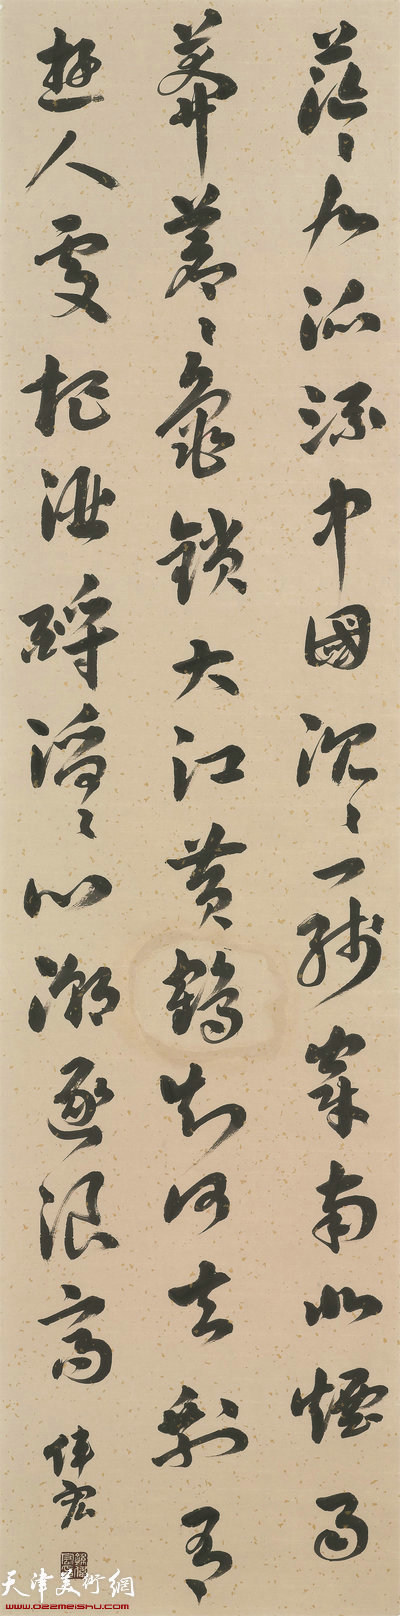 茫〻九派流中國沉〻一線穿南北煙雨
莽蒼〻龜鎖大江黃鶴知何去剩有
遊人處把酒酹滔〻心潮逐浪高
伟宏
天津美術網
www.022meishu.com